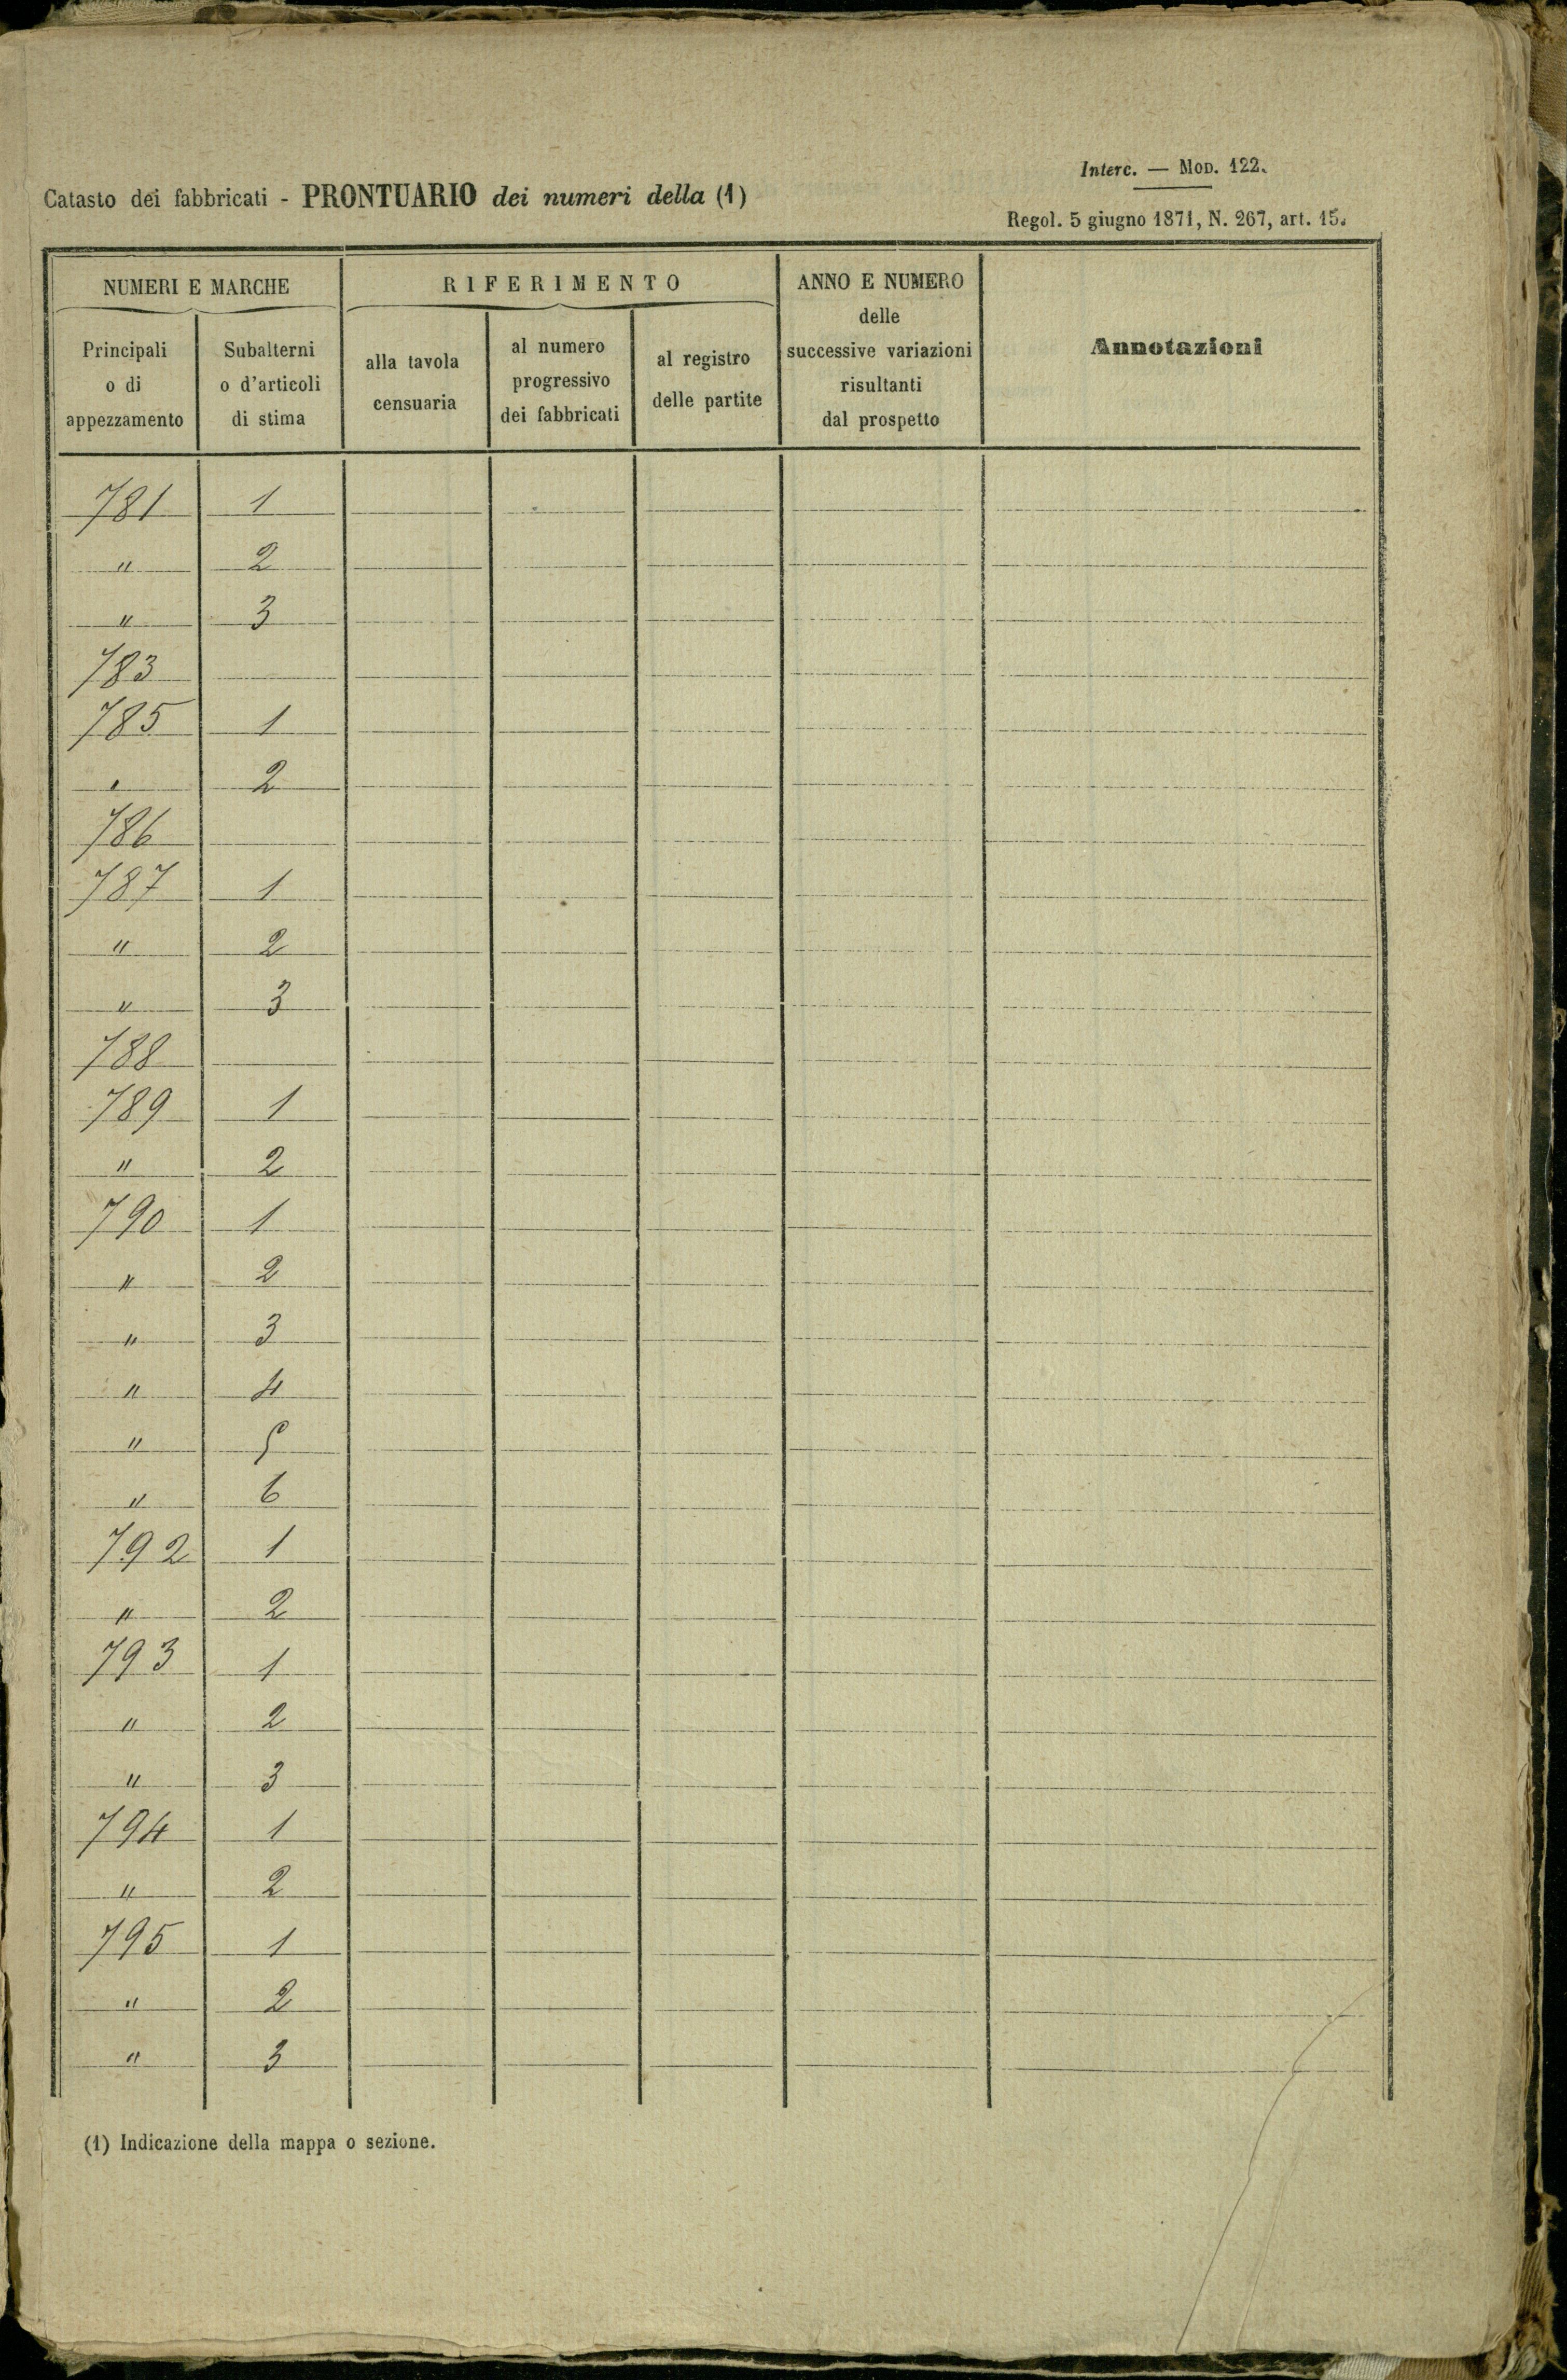 Interc. — Mod. 122.
Catasto dei fabbricati - PRONTUARIO dei numeri della (1)
Regol. 5 giugno 1871, N. 267, art. 15.
NUMERI E MARCHE
Principali
o di
appezzamento
Subalterni
o d'articoli
di stima
RIFERIMENTO
alla tavola
censuaria
al numero
progressivo
dei fabbricati
al registro
delle partite
ANNO E NUMERO
delle
successive variazioni
risultanti
dal prospetto
Annotazioni
781 1
" 2
" 3
783
785 1
" 2
786
787 1
" 2
" 3
788
789 1
" 2
790 1
" 2
" 3
" 4
" 5
" 6
792 1
" 2
793 1
" 2
" 3
794 1
" 2
795 1
" 2
" 3
(1) Indicazione della mappa o sezione.